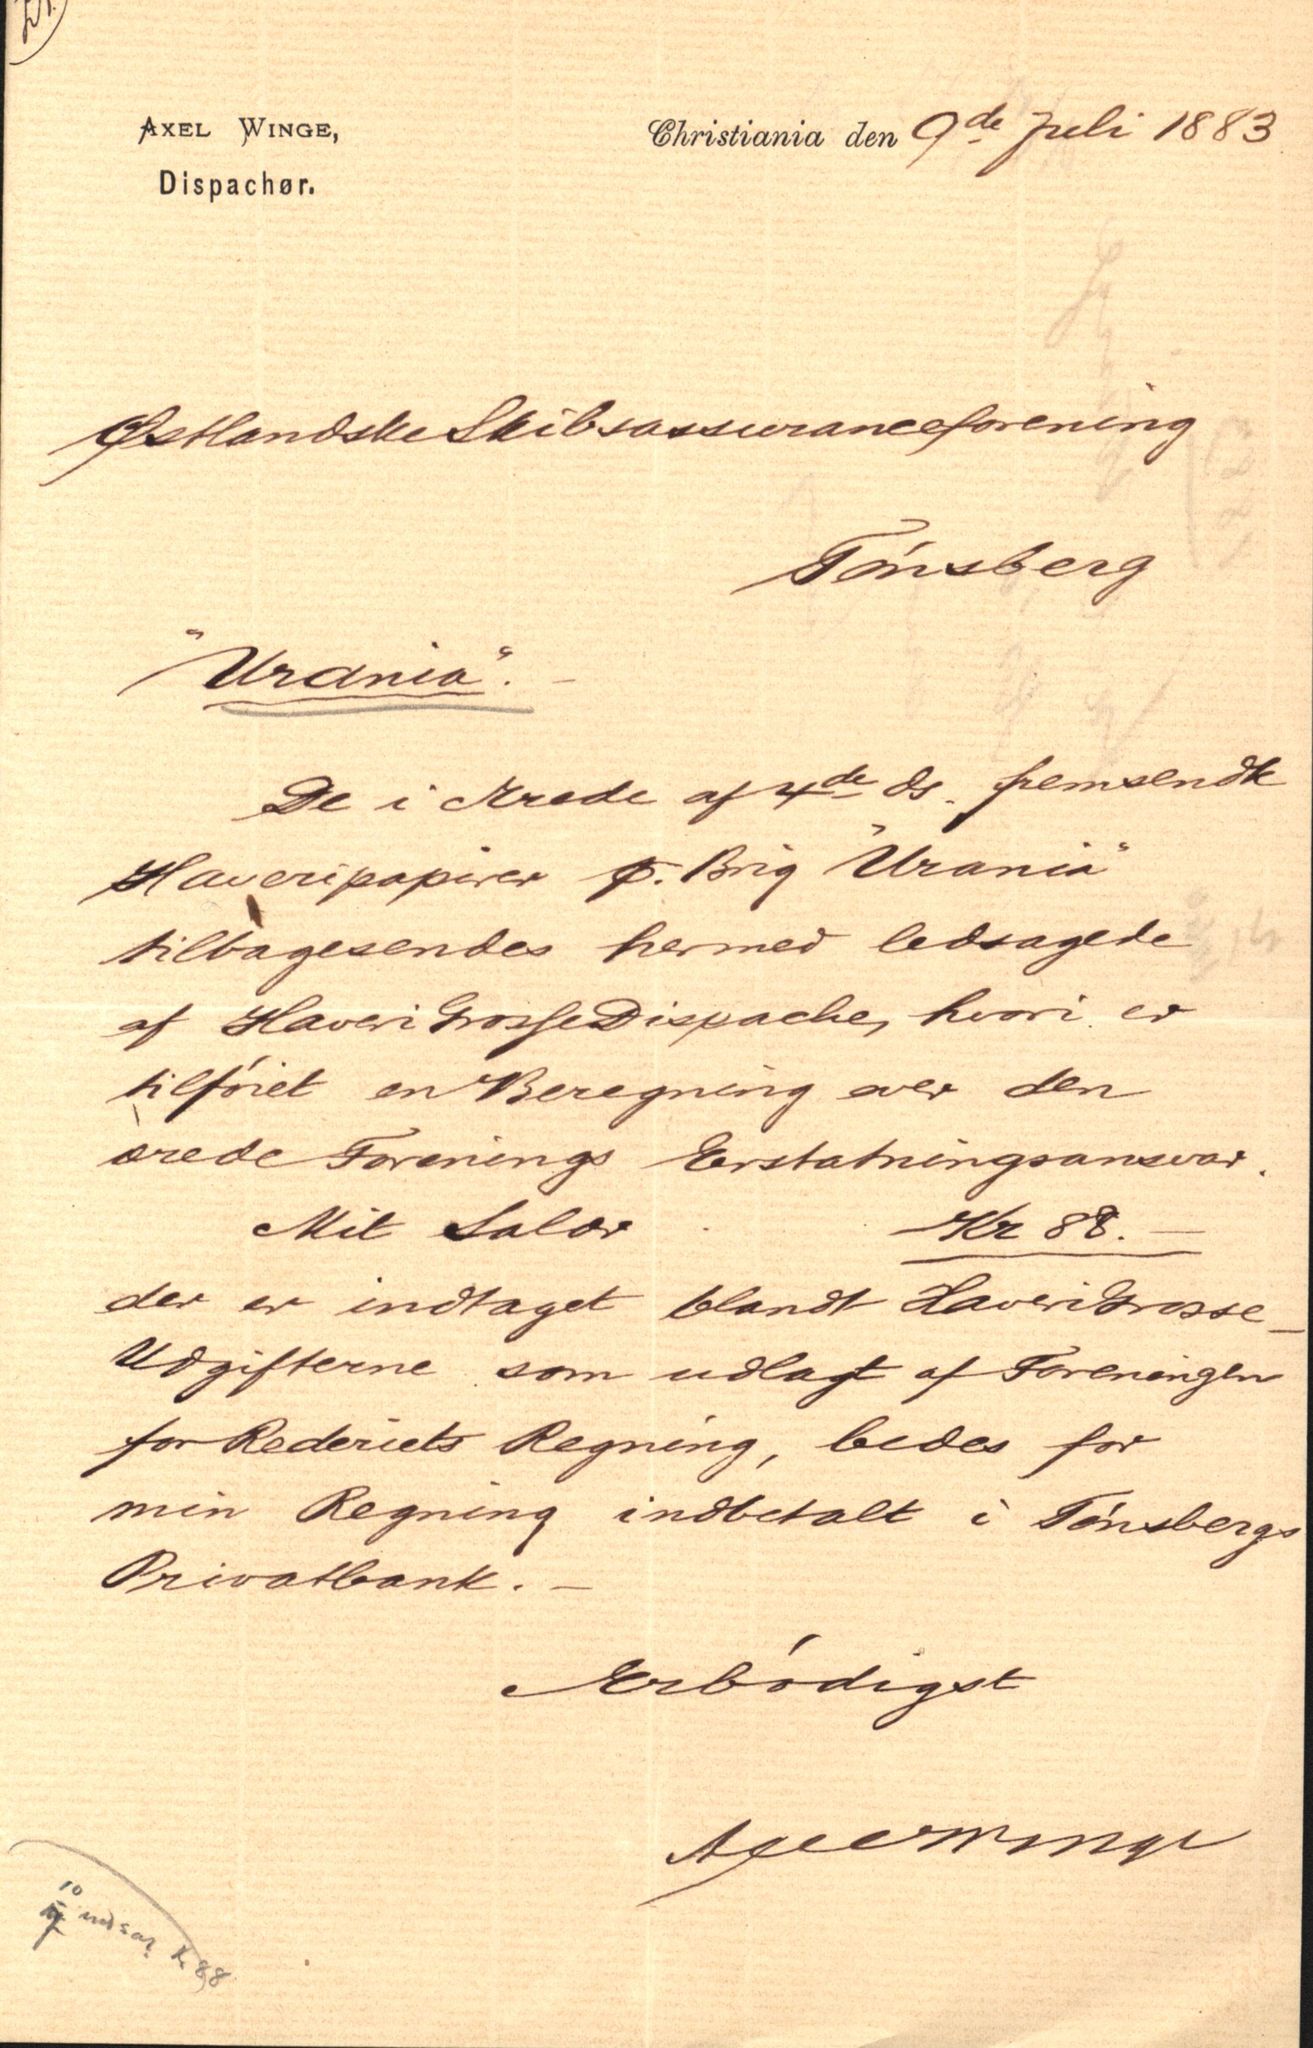 AXEL WINGE,
Dispachør.
Christiania den 9de Juli 1883
Østlandske Skibsassuranceforening
Tönsberg
"Urania". –
De i Ærede af 4de ds. fremsendte
Haveripapirer p. Brig "Urania"
tilbagesendes hermed ledsagede
af Haveri Grosse Dispache, hvori er
tilföiet en Beregning over den
ærede Forenings Erstatningsansvar.
Mit Salær Kr 88. –
der er indtaget blandt Haveri Grosse-
Udgifterne som udlagt af Foreningen
for Rederiets Regning, bedes for
min Regning indbetalt i Tönsbergs
Privatbank. –
Ærbödigst
Axel Winge
10/7 K 88